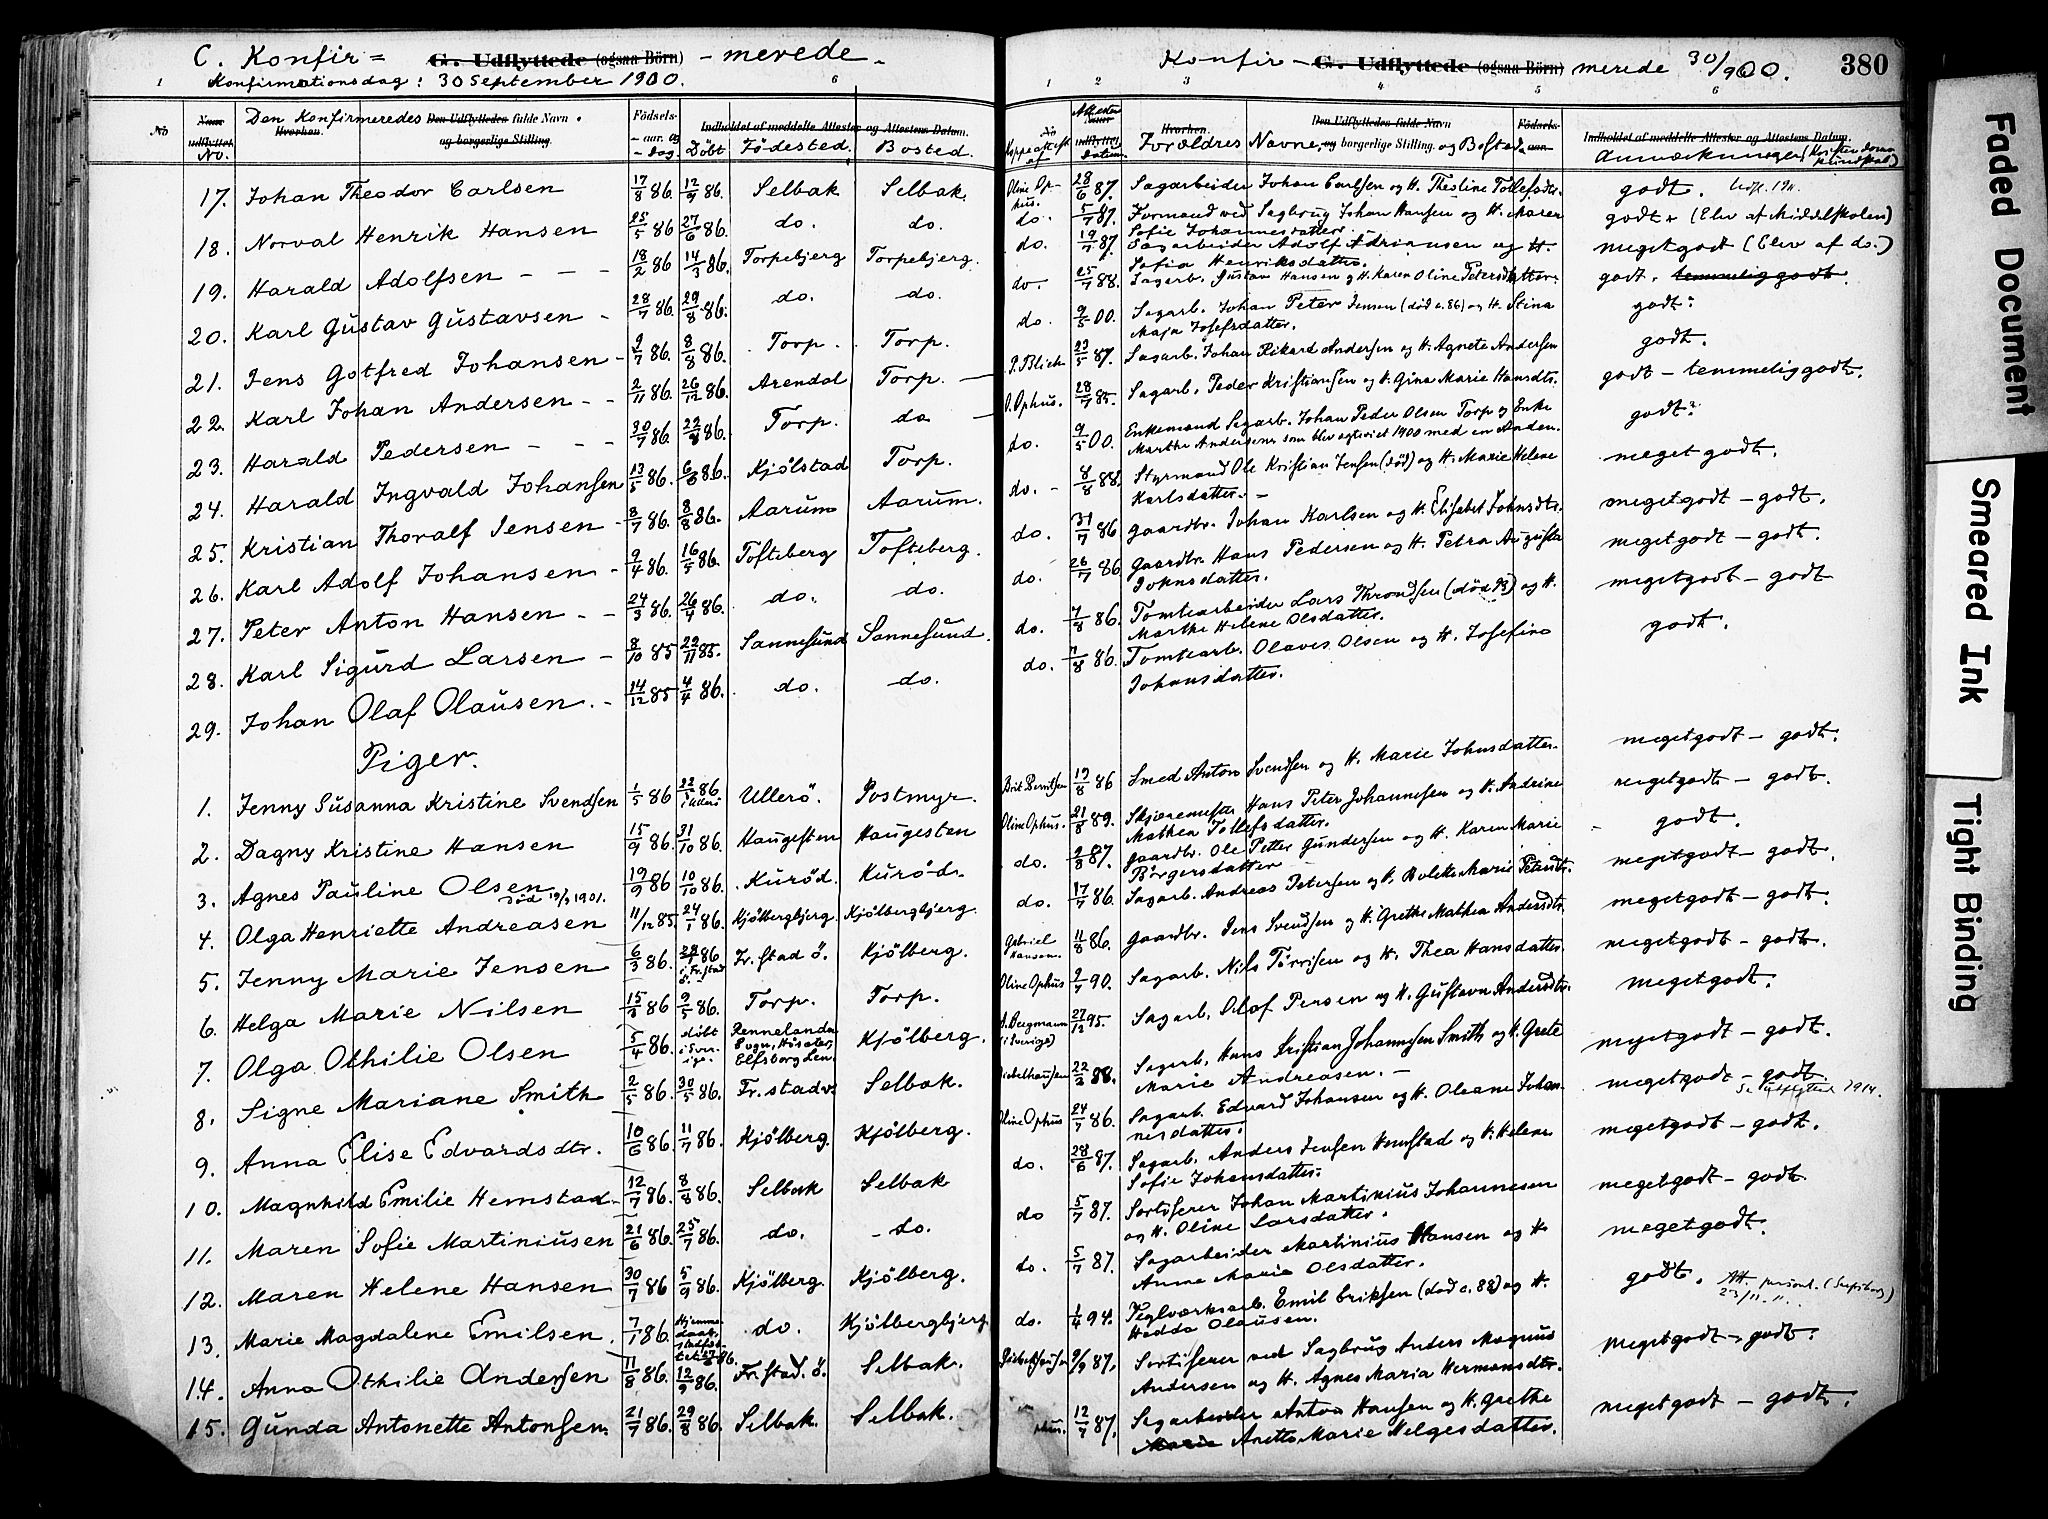 C. Konfir= G. Udflyttede (ogsaa Börn) -merede-
Konfirmationsdag: 30 September 1900.
1 6
No Den Konfirmeredes Den Udflyttedes fulde Navn og borgerlige Stilling. Födsels- aar og -dag Döbt Födested. Bosted.
Indholdet af meddelte Attester og Attestens Datum.
17. Johan Theodor Carlsen 17/8 86. 12/9 86. Selbak Selbak.
18. Norval Henrik Hansen 25/5 86 27/6 86. do. do.
19. Harald Adolfsen - - - 18/2 86 14/3 86. Torpebjerg Torpebjerg.
20. Karl Gustav Gustavsen - 28/7 86. 29/8 86. do. do.
21. Jens Gotfred Johansen - 9/7 86. 8/8 86. Torp. Torp.
22. Karl Johan Andersen - - 2/11 86. 26/12 86. Arendal Torp. -
23. Harald Pedersen - - - 30/7 86. 22/8 86. Torp. do -
24. Harald Ingvald Johansen 13/5 86. 6/6 86. Kjölstad Torp.
25. Kristian Thoralf Jensen - 8/7 86. 8/8 86. Aarum Aarum.
26. Karl Adolf Johansen - 9/4 86. 16/5 86. Tofteberg Tofteberg.
27. Peter Anton Hansen - - 24/3 86. 26/4 86. do. do.
28. Karl Sigurd Larsen - 8/10 85 22/11 85. Sannesund Sannesund.
29. Johan Olaf Olausen. - 14/12 85 4/4 86. do. do.
Piger.
1. Jenny Susanna Kristine Svendsen 1/5 86 22/5 86 Ullerö. Postmyr.
2. Dagny Kristine Hansen 15/9 86. 31/10 86. Haugesten Haugesten
3. Agnes Pauline Olsen 19/9 86 10/10 86. Kuröd. Kuröd.
död 19/3 1901.
4. Olga Henriette Andreasen 11/12 85. 24/1 86. Kjölbergbjerg. Kjölbergbjerg.
5. Jenny Marie Jensen 6/3 86. 86 i Fr.stad Fr.stad Ö. Kjölberg.
6. Helga Marie Nilsen 15/3 86 9/5 86. Torp. Torp.
7. Olga Othilie Olsen 5/4 86. döbt i Sverige. Rennelanda Sogn, Elfsborg Len. Kjölberg.
8. Signe Mariane Smith 2/5 86. 30/5 86. Fr.stad v. Selbak.
9. Anna Elise Edvardsdtr. 10/6 86 11/7 86. Kjölberg. Kjölberg.
10. Magnhild Emilie Hemstad 12/7 86. 8/8 86. Selbak Selbak
11. Maren Sofie Martiniusen 21/6 86. 25/7 86. do. do.
12. Maren Helene Hansen 30/7 86 5/9 86. Kjölberg. Kjölberg.
13. Marie Magdalene Emilsen. 7/1 86. Hjemmedaab, do. Kjölbergbjerg
14. Anna Othilie Andersen 11/8 86. 12/9 86. Fr.stad. Ö. Selbak.
15. Gunda Antonette Antonsen. 21/7 86. 29/8 86. Selbak. Selbak.
Konfir- G. Udflyttede (ogsaa Börn) merede 30/9 00. 380
1 2 3 4 5 6
Attester Datum. Forældres Navne, og borgerlige Stilling. og Bosted.
Indholdet af meddelte Attester og Attestens Datum.
Anmærkninger (Kristendomskundskab)
Oline Ophus. 28/6 87. Sagarbeider Johan Carlsen og H. Theoline Tollefsdtr. godt. Udfl. 19
do. 5/7 87. Formand ved Sagbrug Johan Hansen og H. Maren Sofie Johannesdatter. godt. (Elev af Middelskolen)
do. 19/7 87. Sagarbeider Adolf Adriansen og H. Sofia Henriksdatter. meget godt (Elev af do.)
do. 25/7 88. Sagarb. Gustav Hansen og H. Karen Oline Petersdatter. godt. temmelig godt.
do. 9/5 00. Sagarb. Johan Peter Jensen (död c. 86) og H. Stina Maja Josefsdatter. godt.
P. Blich 23/5 87. Sagarb. Johan Rikard Andersen og H. Agnete Andersen godt.
O. Ophus. 28/7 85. Sagarb. Peder Kristiansen og H. Gina Marie Hansdtr. godt - temmelig godt.
do. 9/5 00. Enkemand Sagarb. Johan Peder Olsen Torp og Enke Marthe Andersens som blev egteviet 1900 med en Anden. godt.
do. - 8/8 88. Styrmand Ole Kristian Jensen (död) og H. Marie Helene Karlsdatter. - meget godt.
do. 31/7 86 Gaardbr. Johan Karlsen og H. Elisabet Johnsdtr. meget godt - godt.
do. 26/7 86 Gaardbr. Hans Pedersen og H. Petra Augusta Johnsdatter. meget godt - godt.
do. 7/8 86. Tomtearbeider Lars Throndsen (död) og H. Marthe Helene Olsdatter. meget godt - godt
do. 7/8 86. Tomtearb. Olaves Olsen og H. Josefine Johansdatter. godt.
Brit Berntsen 19/8 86 Smed Anton Svendsen og H. Marie Johnsdatter. meget godt - godt.
Oline Ophus. 21/8 89. Skjæremester Hans Peter Johannesen og H. Andrine Mathea Tollefsdatter. meget godt - godt.
do. 2/8 87. Gaardbr. Ole Petter Gundersen og H. Karen Marie Börgersdatter - godt.
do. 17/7 86. Sagarb. Andreas Petersen og H. Bolette Marie Petersdtr. meget godt - godt.
Gabriel Hansen. 11/8 86. Gaardbr. Jens Svendsen og H. Grethe Mathea Andersdtr. meget godt - godt.
Oline Ophus 2/7 90. Sagarb. Nils Törrisen og H. Thea Hansdatter. meget godt - godt.
A. Bergmann (i Sverige) 27/12 95. Sagarb. Olof Persen og H. Gustava Andersdtr. meget godt.
22/3 88. Sagarb. Hans Kristian Johannesen Smith og H. Grete Marie Andreasen. - meget godt - godt.
Oline Ophus 24/7 86. Sagarb. Edvard Johansen og H. Oleane Johannesdatter. meget godt - godt. Se Udflyttede 1914.
do. 28/6 87. Sagarb. Anders Jensen Hemstad og H. Helene Sofie Johansdatter. meget godt - godt.
do 5/7 87. Sortiserer Johan Martinius Johannesen og H. Oline Larsdatter. meget godt - godt
do. 5/7 87. Sagarbeider Martinius Hansen og H. Anna Marie Olsdatter. meget godt.
do. 1/4 94. Teglværksarb. Emil Eriksen (död c. 88) og H. Hedda Olausen. godt. Att. (Sarpsborg) 23/11
9/9 87. Sortiserer ved Sagbrug Anders Magnus Andersen og H. Agnes Maria Hermansdtr. meget godt - godt.
12/7 87. Sagarbeider Anton Hansen og H. Grethe Marie Anette Marie Helgesdatter. meget godt - godt.
Faded Document
Smeared Ink
Tight Binding